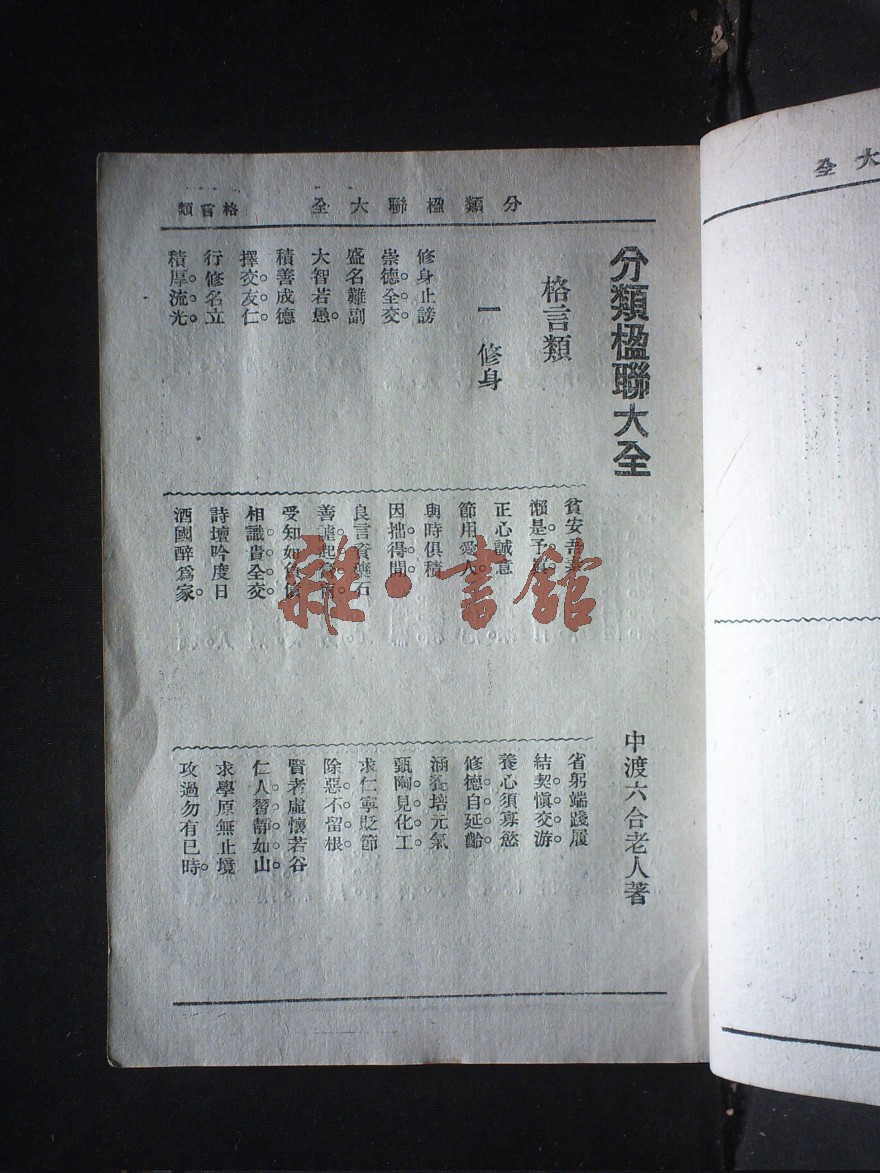 分類楹聯大全
格言類
分類楹聯大全
中渡六合老人著
格言類
一 修身
修身止謗
崇德全交。
盛名難副
大智若愚。
積善成德
擇交友仁。
行修名立
積厚流光。
貧安吾
懶是予
正心誠意
節用愛人。
與時俱積
因拙得閒。
良言資藥石
善
受知如魚
相識貴全交。
詩壇吟度日
酒國醉爲家。
省躬端踐履
結契慎交游。
養心須寡慾
修德自延齡。
涵養培元氣
甄陶見化工。
求仁寧貶節
除惡不留根。
賢者虛懷若谷
仁人習靜如山。
求學原無止境
攻過勿有已時。
大全
雜·書館